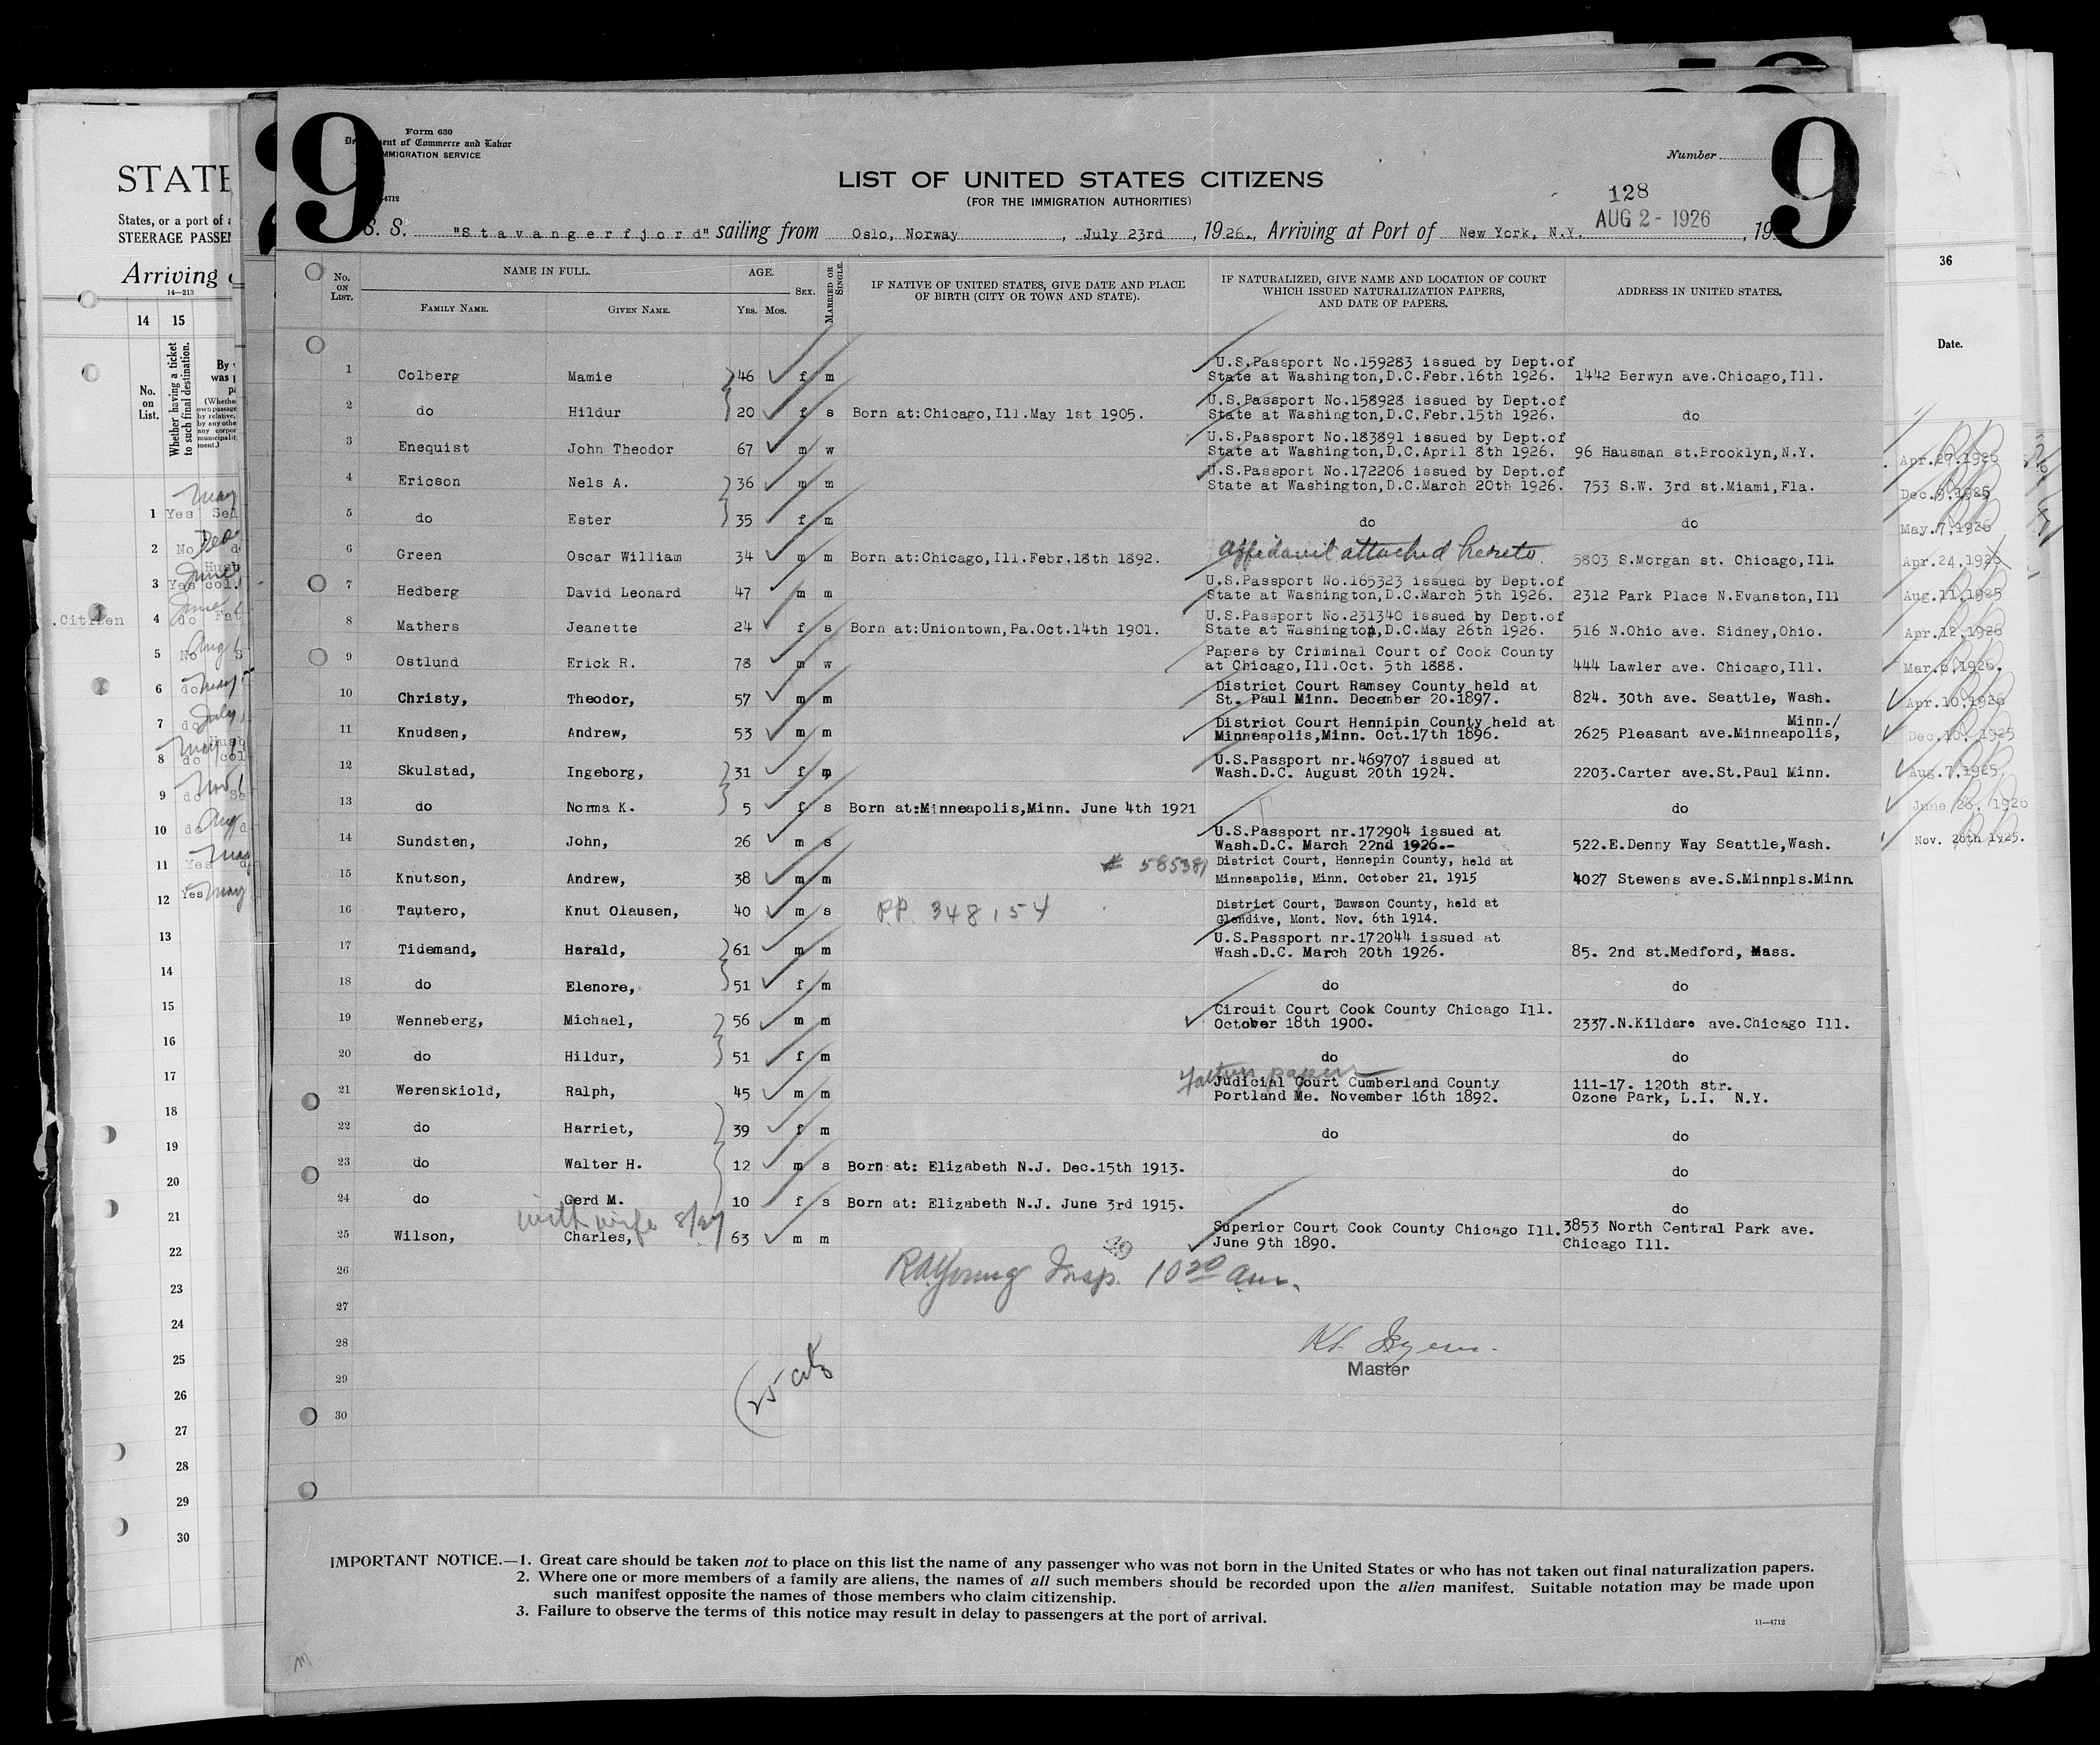 9
Form 630
Department of Commerce and Labor
IMMIGRATION SERVICE
Number
9
LIST OF UNITED STATES CITIZENS
(FOR THE IMMIGRATION AUTHORITIES)
128
AUG 2 - 1926
S. S. "Stavangerfjord" sailing from Oslo, Norway, July 23rd, 1926., Arriving at Port of New York, N.Y., 19
No. ON LIST.
NAME IN FULL.
FAMILY NAME.
GIVEN NAME.
AGE.
YRS. MOS.
SEX.
MARRIED OR SINGLE.
IF NATIVE OF UNITED STATES, GIVE DATE AND PLACE
OF BIRTH (CITY OR TOWN AND STATE).
IF NATURALIZED, GIVE NAME AND LOCATION OF COURT
WHICH ISSUED NATURALIZATION PAPERS,
AND DATE OF PAPERS.
ADDRESS IN UNITED STATES.
1 Colberg Mamie 46 f m U.S.Passport No.159283 issued by Dept.of
State at Washington,D.C.Febr.16th 1926. 1442 Berwyn ave.Chicago,Ill.
2 do Hildur 20 f s Born at:Chicago,Ill.May 1st 1905. U.S.Passport No.158928 issued by Dept.of
State at Washington,D.C.Febr.15th 1926. do
3 Enequist John Theodor 67 m w U.S.Passport No.183891 issued by Dept.of
State at Washington,D.C.April 8th 1926. 96 Hausman st.Brooklyn,N.Y.
4 Ericson Nels A. 36 m m U.S.Passport No.172206 issued by Dept.of
State at Washington,D.C.March 20th 1926. 753 S.W. 3rd st.Miami,Fla.
5 do Ester 35 f m do do
6 Green Oscar William 34 m m Born at:Chicago,Ill.Febr.18th 1892. affidavit attached hereto 5803 S.Morgan st. Chicago,Ill.
7 Hedberg David Leonard 47 m m U.S.Passport No.165323 issued by Dept.of
State at Washington,D.C.March 5th 1926. 2312 Park Place N.Evanston,Ill
8 Mathers Jeanette 24 f s Born at:Uniontown,Pa.Oct.14th 1901. U.S.Passport No.231340 issued by Dept.of
State at Washington,D.C.May 26th 1926. 516 N.Ohio ave. Sidney,Ohio.
9 Ostlund Erick R. 78 m w Papers by Criminal Court of Cook County
at Chicago,Ill.Oct. 5th 1888. 444 Lawler ave. Chicago,Ill.
10 Christy, Theodor, 57 m m District Court Ramsey County held at
St. Paul Minn. December 20.1897. 824. 30th ave. Seattle, Wash.
11 Knudsen, Andrew, 53 m m District Court Hennipin County held at
Minneapolis,Minn. Oct.17th 1896. 2625 Pleasant ave.Minneapolis, Minn./
12 Skulstad, Ingeborg, 31 f m U.S.Passport nr.469707 issued at
Wash.D.C. August 20th 1924. 2203.Carter ave.St.Paul Minn.
13 do Norma K. 5 f s Born at:Minneapolis,Minn. June 4th 1921 do
14 Sundsten, John, 26 m s U.S.Passport nr.172904 issued at
Wash.D.C. March 22nd 1926.- 522.E.Denny Way Seattle,Wash.
15 Knutson, Andrew, 38 m m # 585381 District Court, Hennepin County, held at
Minneapolis, Minn. October 21. 1915 4027 Stewens ave.S.Minnpls.Minn
16 Tautero, Knut Olausen, 40 m s P.P. 348154 District Court, Dawson County, held at
Glendive, Mont. Nov. 6th 1914.
17 Tidemand, Harald, 61 m m U.S.Passport nr.172044 issued at
Wash.D.C. March 20th 1926. 85. 2nd st.Medford, Mass.
18 do Elenore, 51 f m do do
19 Wenneberg, Michael, 56 m m Circuit Court Cook County Chicago Ill.
October 18th 1900. 2337.N.Kildare ave.Chicago Ill.
20 do Hildur, 51 f m do do
Father papers
21 Werenskiold, Ralph, 45 m m Judicial Court Cumberland County
Portland Me. November 16th 1892. 111-17. 120th str.
Ozone Park, L.I. N.Y.
22 do Harriet, 39 f m do do
23 do Walter H. 12 m s Born at: Elizabeth N.J. Dec.15th 1913. do
24 do Gerd M. 10 f s Born at: Elizabeth N.J. June 3rd 1915. do
with wife 8/27
25 Wilson, Charles, 63 m m Superior Court Cook County Chicago Ill.
June 9th 1890. 3853 North Central Park ave.
Chicago Ill.
26
RAYoung Insp. 10 20 am.
27
28
Master
29
(25 citz
30
IMPORTANT NOTICE.—1. Great care should be taken not to place on this list the name of any passenger who was not born in the United States or who has not taken out final naturalization papers.
2. Where one or more members of a family are aliens, the names of all such members should be recorded upon the alien manifest. Suitable notation may be made upon
such manifest opposite the names of those members who claim citizenship.
3. Failure to observe the terms of this notice may result in delay to passengers at the port of arrival.
11—4712
STATE
States, or a port of
STEERAGE PASSE
Arriving
14—213
14 15
No. on List.
Whether having a ticket to such final destination.
1 Yes
2 No
3 Yes
.Citizen 4 do
5 No
6 do
7 do
8 do
9 do
10 do
11 Yes
12 Yes
13
14
15
16
17
18
19
20
21
22
23
24
25
26
27
28
29
30
36
Date.
Apr.27,1926
Dec.9,1925
May.7,1926
Apr.24,1926
Aug.11,1925
Apr.12,1926
Mar.6,1926.
Apr.10,1926
Dec.10,1925
Aug.7,1925
June 26, 1926
Nov. 20th 1925.